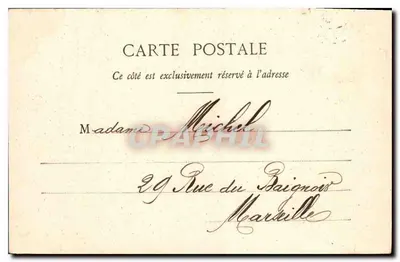 CARTE POSTALE
Ce côté est exclusivement réservé à l'adresse
Madame Michel
29 Rue du Baignoir
Marseille